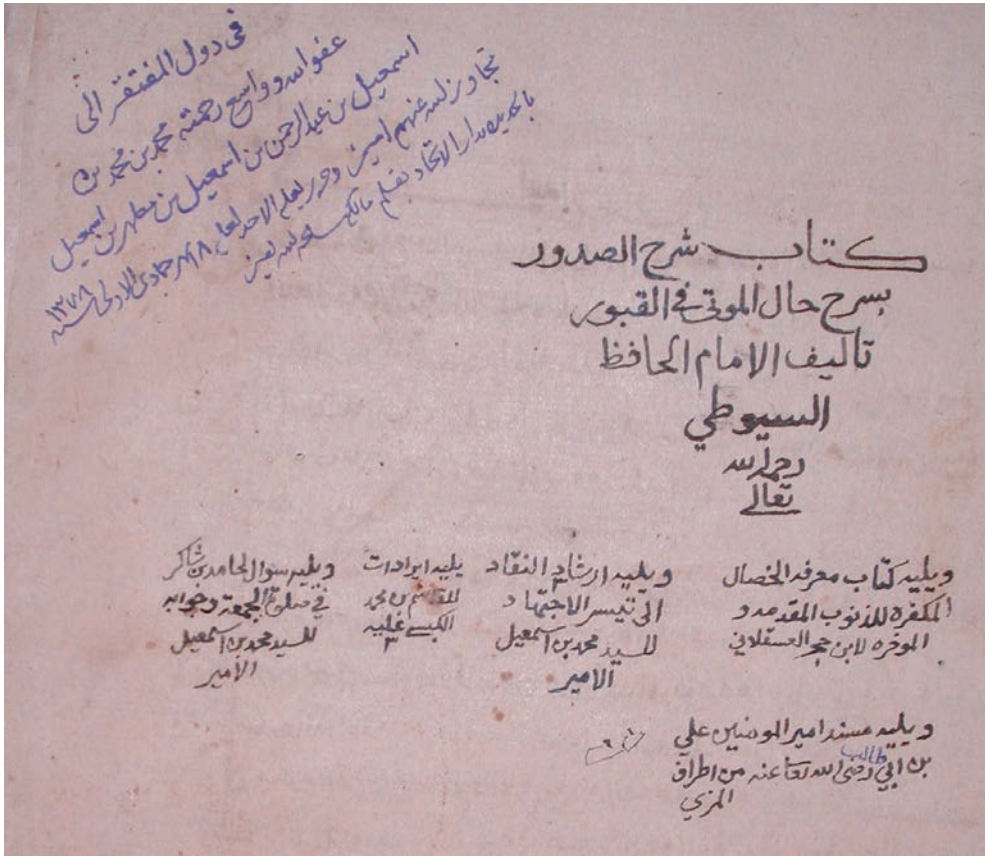 في دول المفتقر الى
عفو الله وواسع رحمته محمد بن محمد بن
اسمعيل بن عبد الرحمن بن اسمعيل بن مطهر بن اسمعيل
تجاوز الله عنهم امين وحرر ليلة الاحد جمادى الاولى سنة ١٣٧٨
بدار الاتحاد بقلم مالكه
كتاب شرح الصدور
بسرح حال الموتى في القبور
تاليف الامام الحافظ
السيوطي
رحمه الله
تعالى
ويليه كتاب معرفه الخصال
المكفره للذنوب المقدمه و
الموخره لابن حجر العسقلاني
ويليه ارشاد النقاد
الى تيسر الاجتهاد
للسيد محمد بن اسمعيل
الامير
يليه ايرادات
للقاسم بن محمد
الكبسي عليه
٣
ويليه سوال لحامد بن شاكر
في صلوة الجمعة وجوابه
للسيد محمد بن اسمعيل
الامير
ويليه مسند امير المومنين علي
بن ابي طالب رضى الله تعا عنه من اطراف
المزي